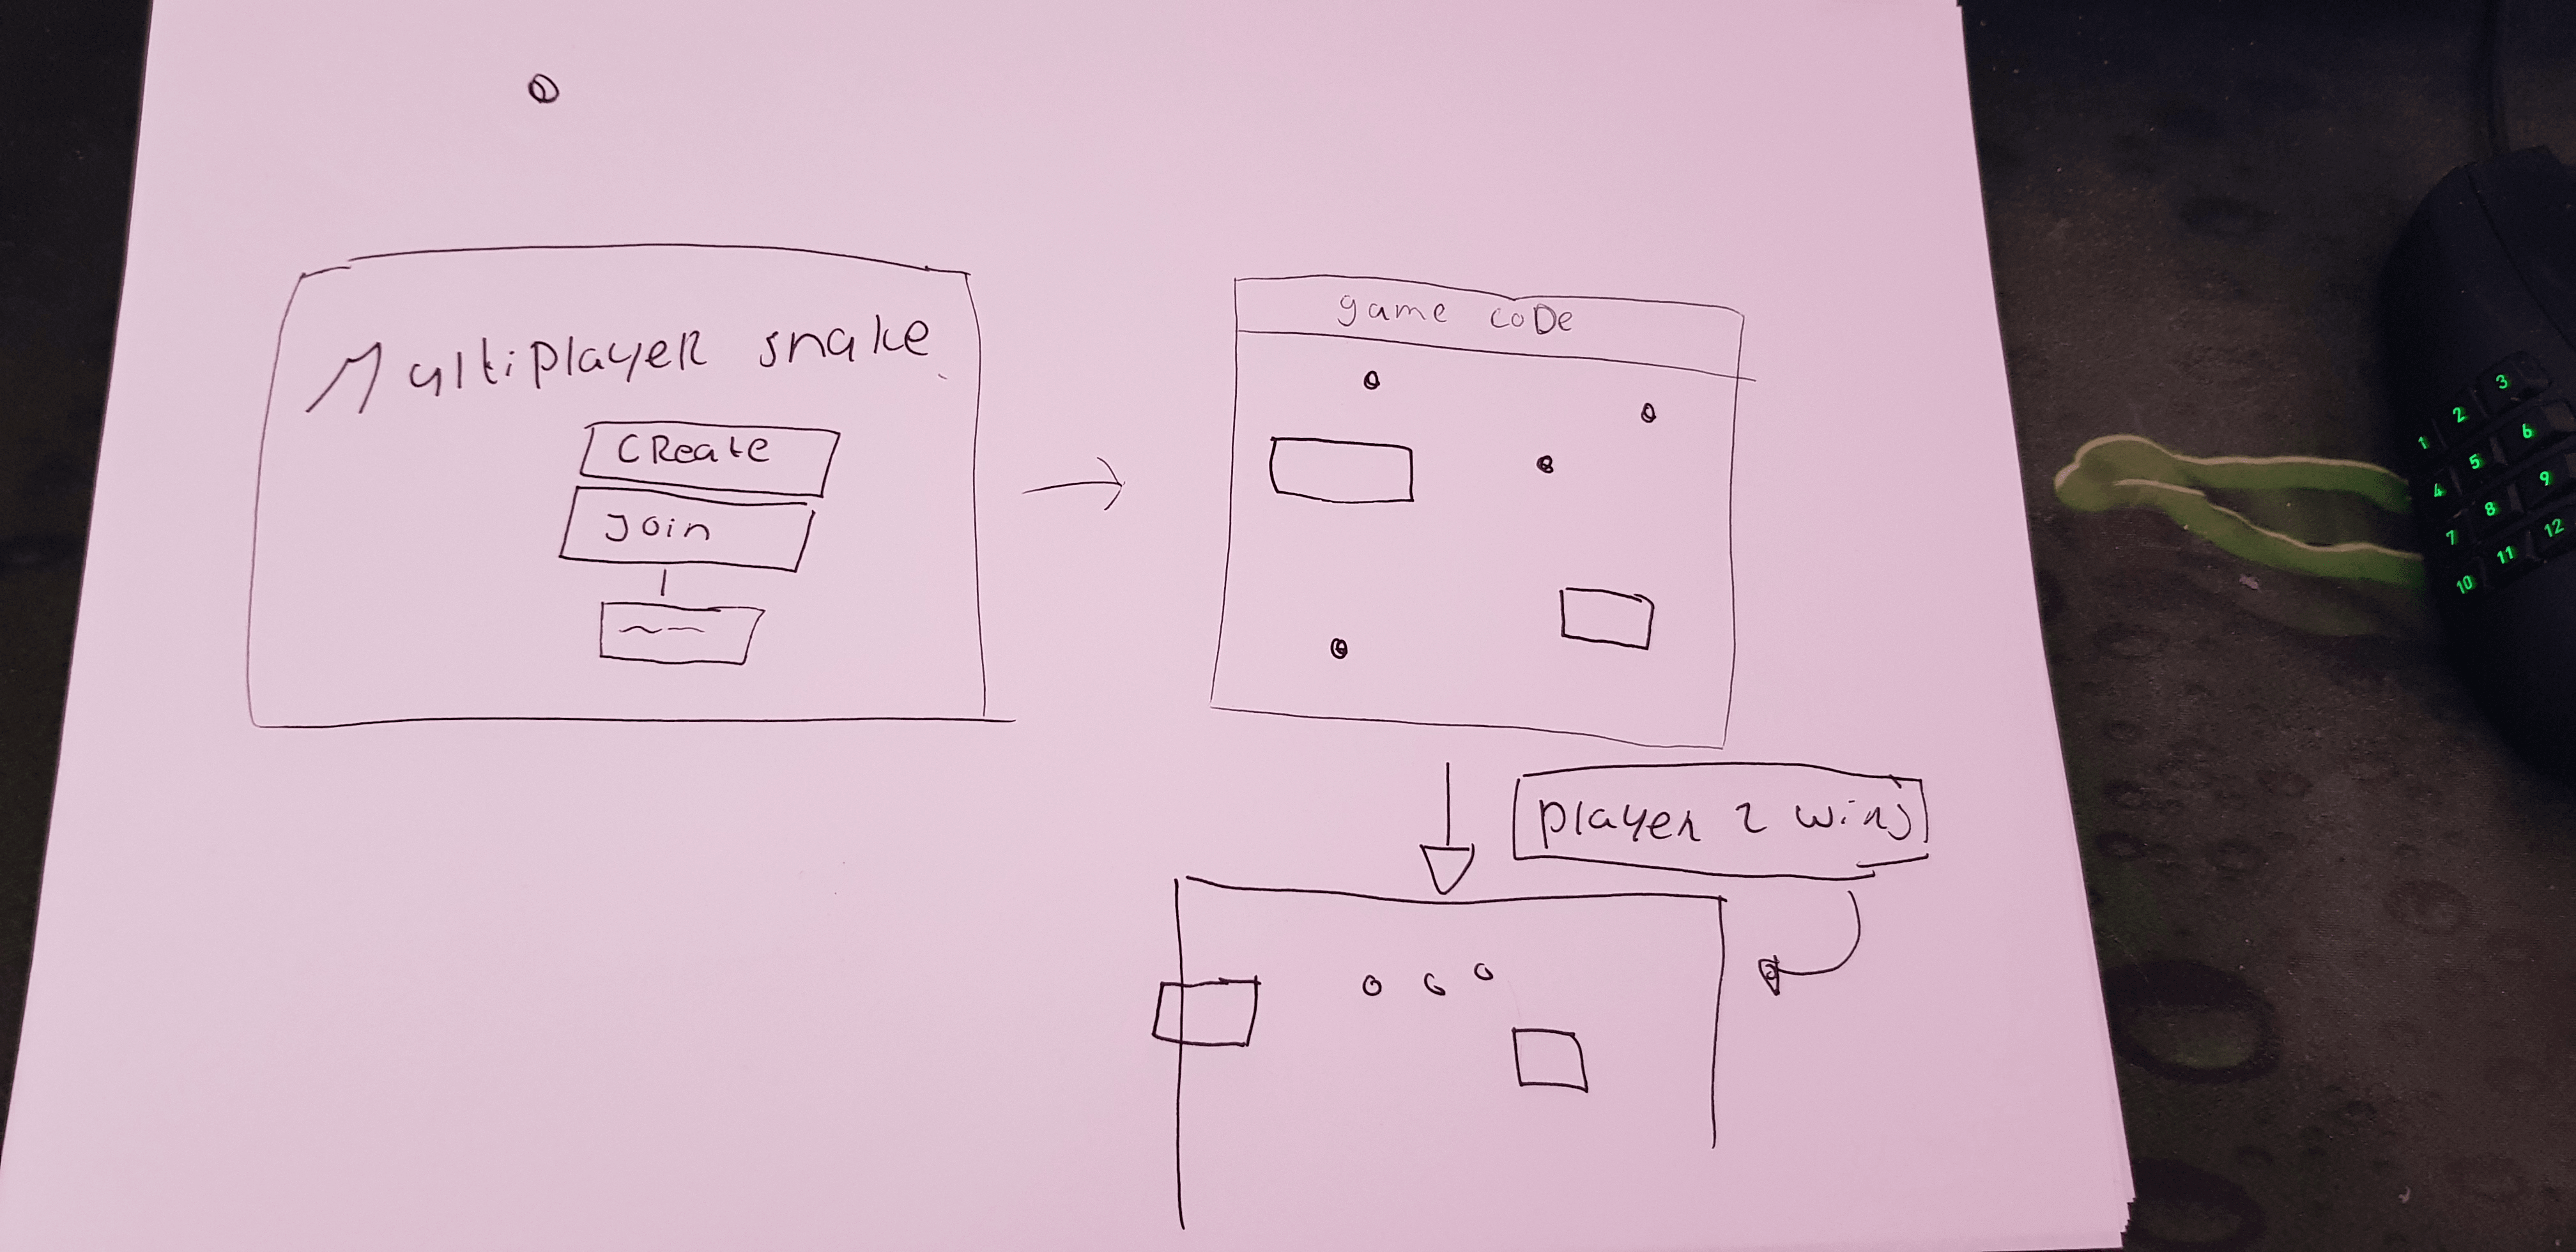 Multiplayer snake
Create
Join
game code
player 2 wins
1
2
3
4
5
6
7
8
9
10
11
12